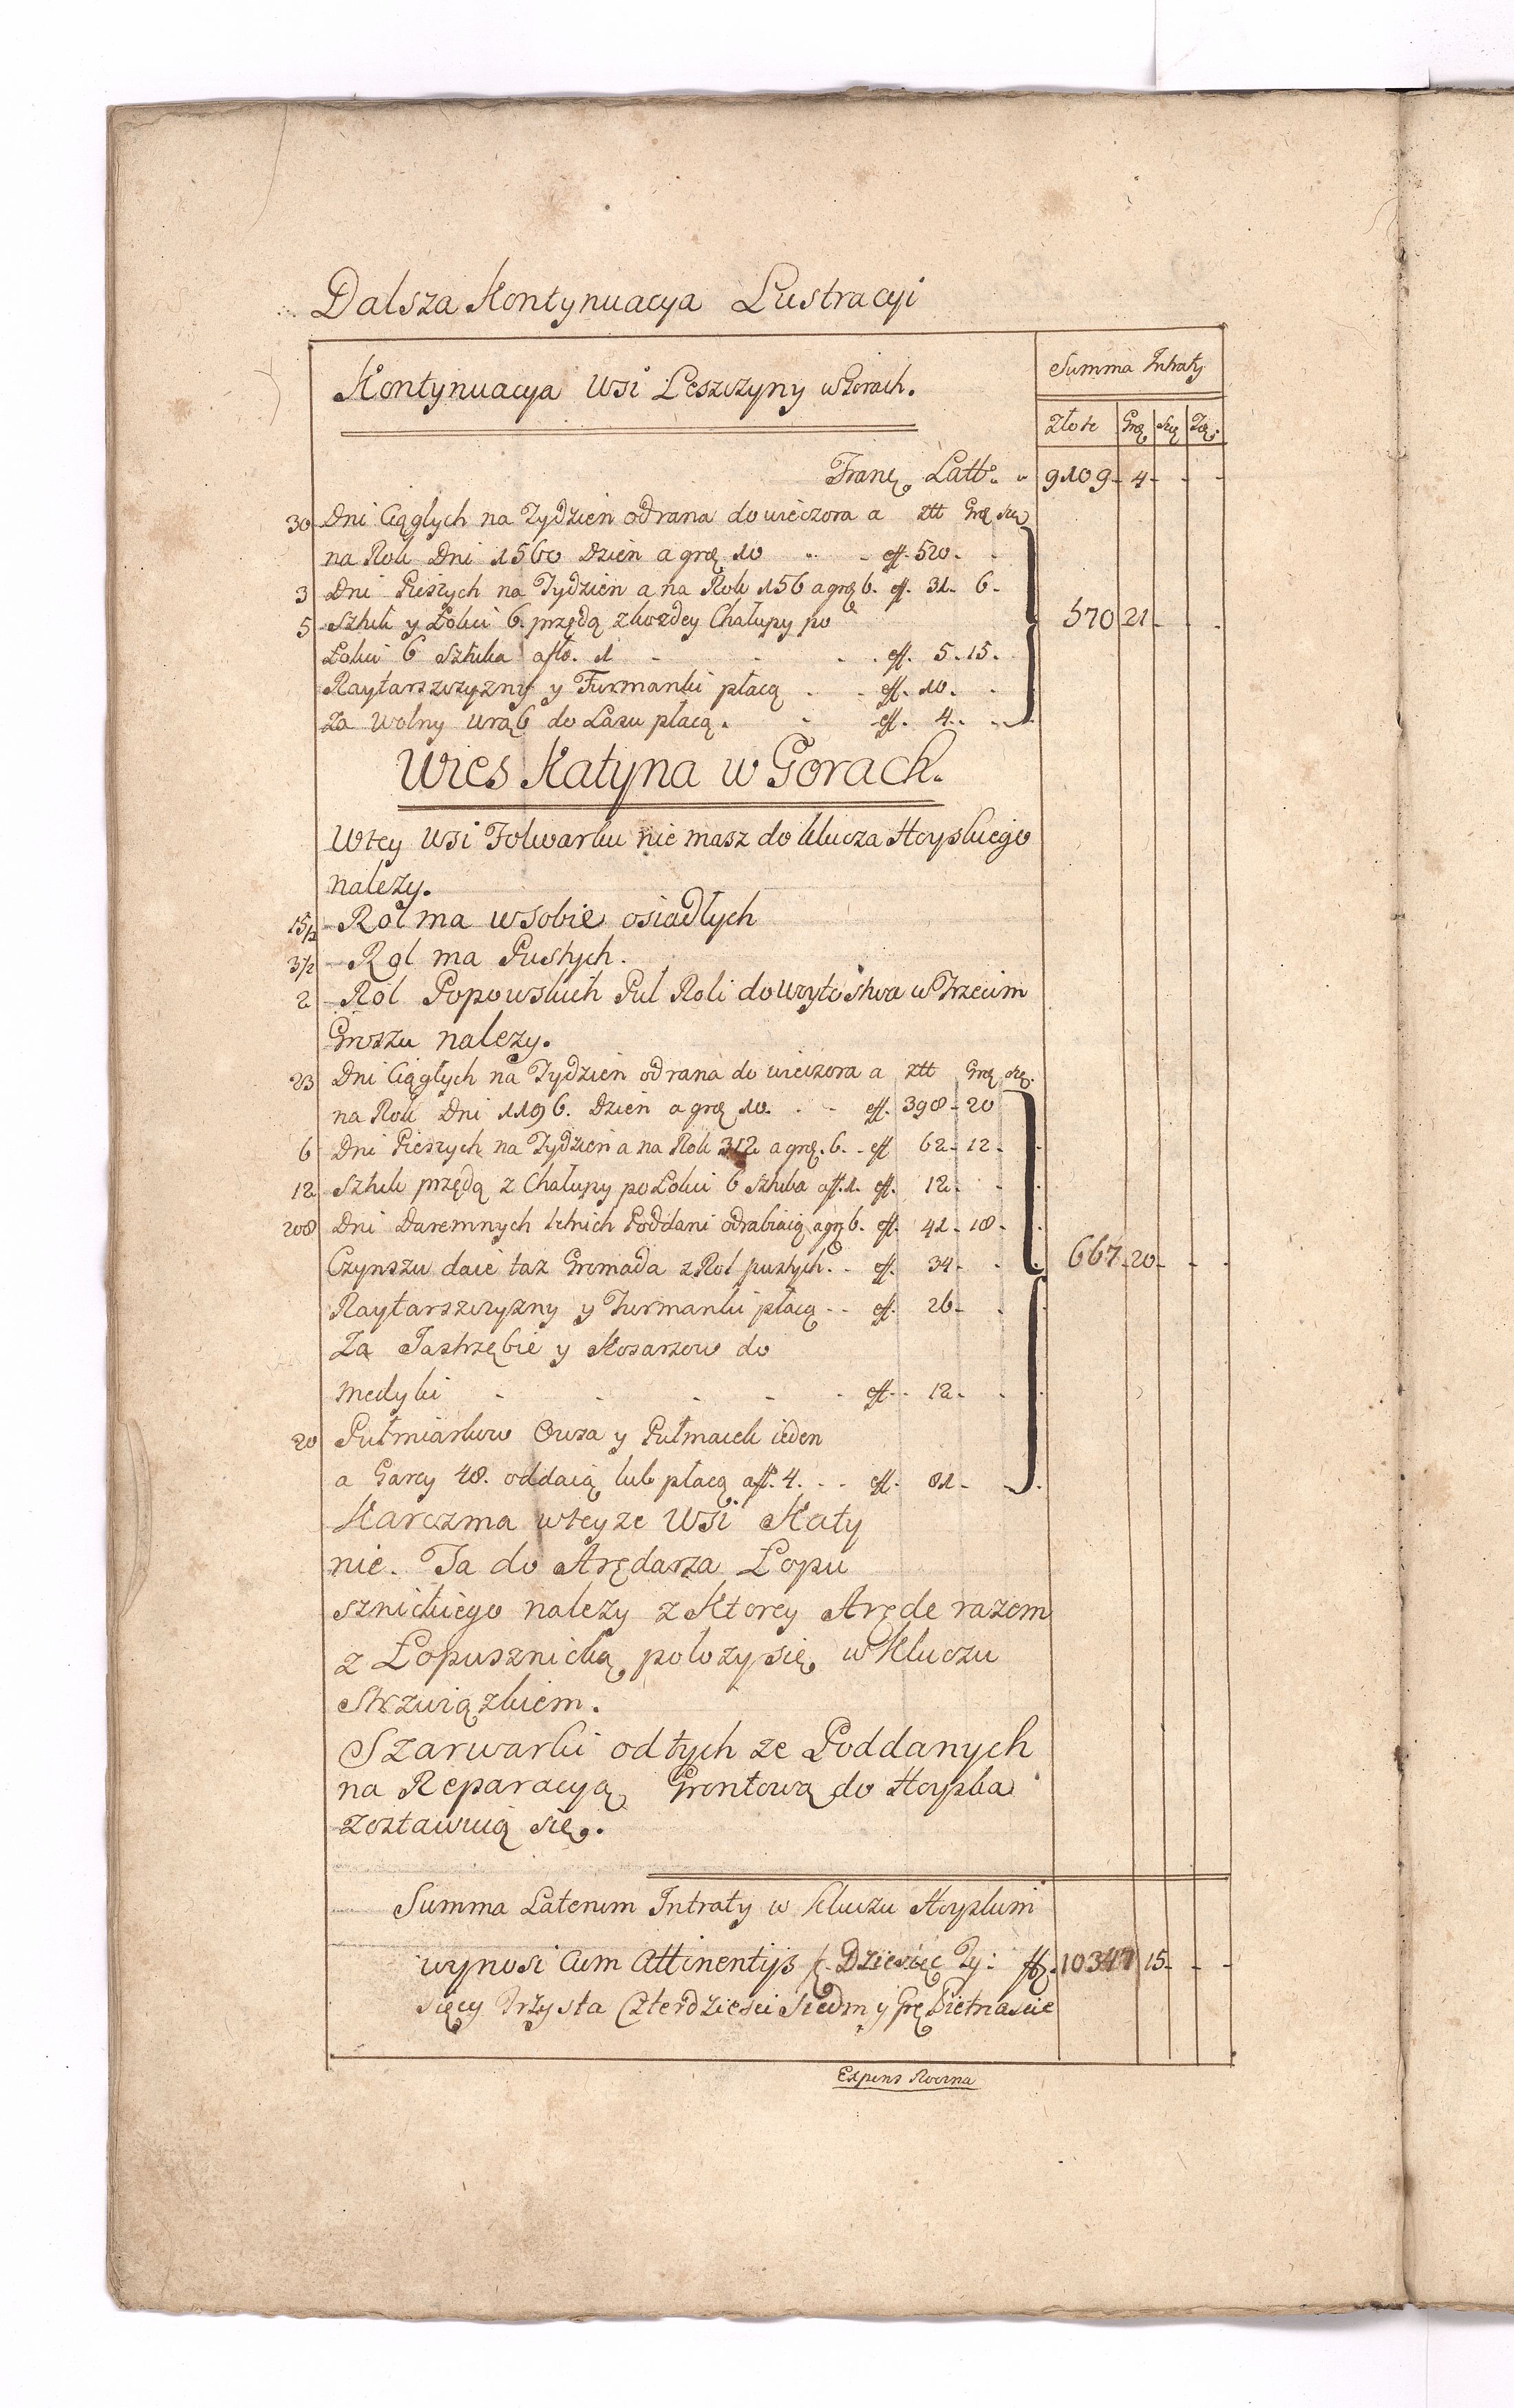 Dalsza Kontynuacya Lustracyi
Kontynuacya Wsi Leszczyny w Gorach.
Summa Intraty
Złote Groę Szę
Franę. Latt: 9109 4
30 Dni Ciąglych na Tydzien od rana do wieczora a ztt Groę Szę
na Roli Dni 1560 Dzien a groę 10 ff. 520.
3 Dni Pieszych na Tydzien a na Roli 156 a groę 6. ff. 31. 6
5 Sztuk y Łokci 6. przędą z kozdey Chałupy po
Łokci 6 Sztuka a flo. 1 ff. 5. 15.
Raytarszczyzny y Furmanki płacą ff. 10.
Za Wolny Urąb do Lasu płacą. ff. 4.
570 21
Wies Katyna w Gorach.
W tey Wsi Folwarku nie masz do klucza Hoyskiego
nalezy.
15/2 Rol ma w sobie osiadłych
3/2 Rol ma Pustych.
2 Rol Popowskich Puł Roli do Uzytostwa w Trzecim
Groszu nalezy.
23 Dni Ciągłych na Tydzien od rana do wieczora a ztt Groę Szę.
na Roli Dni 1196. Dzien a groę 10. ff. 398 20
6 Dni Pieszych na Tydzien a na Roli 312 a groę. 6. ff 62 12
12 Sztuk przędą z Chałupy po Łokci 6 Sztuka a ff. 1. ff. 12
208 Dni Daremnych letnich Poddani odrabiaią a grę 6. ff. 41 18
Czynszu daie taz Gromada z Rol pustych. ff. 34
667 20
Raytarszczyzny y Furmanki płacą ff. 26
Za Jastrzębie y Kosarzow do
Medyki ff. 12
20 Pułmiarkow Owsa y Pułmacek ieden
a Garcy 48. oddaią lub płacą a ff. 4. ff. 81
Karczma w teyze Wsi Katy
nie. Ta do Arędarza Łopu
sznickiego nalezy z Ktorey Aręde razem
z Łopusznicką polozy się w Kluczu
Strzwiązkiem.
Szarwarki od tych ze Poddanych
na Reparacyą Grontową do Hoyska
zostawuią się.
Summa Laterum Intraty w Kluczu Hoyskim
wynosi Cum Attinentys f. Dziesięc Ty: ff. 10347 15
sięcy Trzysta Czterdziesci Siedm y Grę Pietnascie
Expens Roczna